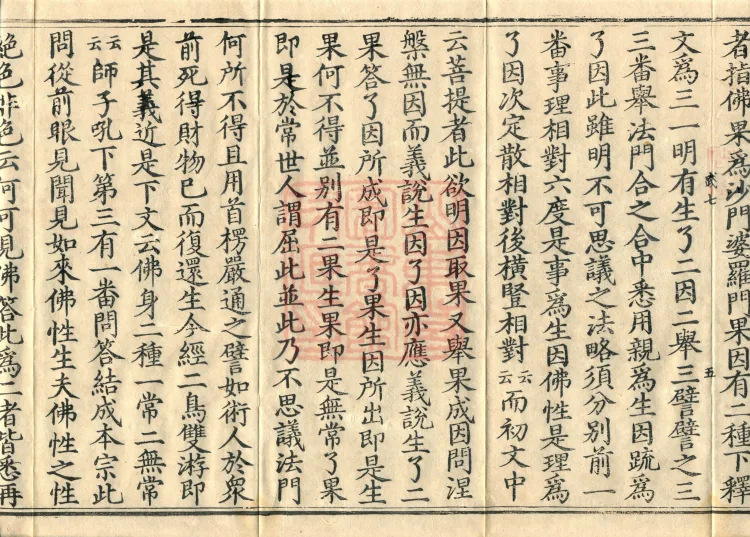 者指佛果為沙門婆羅門果因有二種下釋
弐七
五
文為三一明有生了二因二舉三譬譬之三
三番舉法門合之合中悉用親為生因䟽為
了因此雖明不可思議之法略須分別前一
番事理相對六度是事為生因佛性是理為
了因次定散相對後橫豎相對云云而初文中
云菩提者此欲明因取果又舉果成因問涅
槃無因而義說生因了因亦應義說生了二
果答了因所成即是了果生因所出即是生
果何不得並別有二果生果即是無常了果
即是於常世人謂屈此並此乃不思議法門
何所不得且用首楞嚴通之譬如術人於衆
前死得財物已而復還生今經二鳥雙游即
是其義近是下文云佛身二種一常二無常
云云師子吼下第三有一番問答結成本宗此
問從前眼見聞見如來佛性生夫佛性之性
絶色非色云何可見佛答此為二者皆悉再